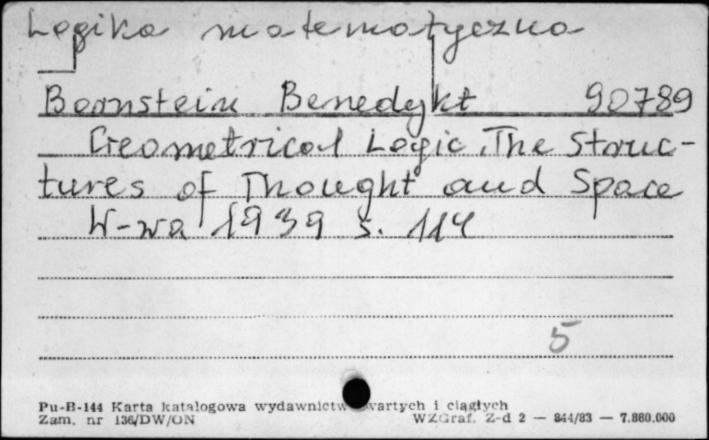 Logika matematyczna
Bornstein Benedykt 90789
Geometrical Logic. The Struc-
tures of Thought and Space
W-wa 1939 s. 114
5
Pu-B-144 Karta katalogowa wydawnictw zwartych i ciągłych
Zam. nr 136/DW/ON WZGraf. Z-d 2 — 844/83 — 7.860.000